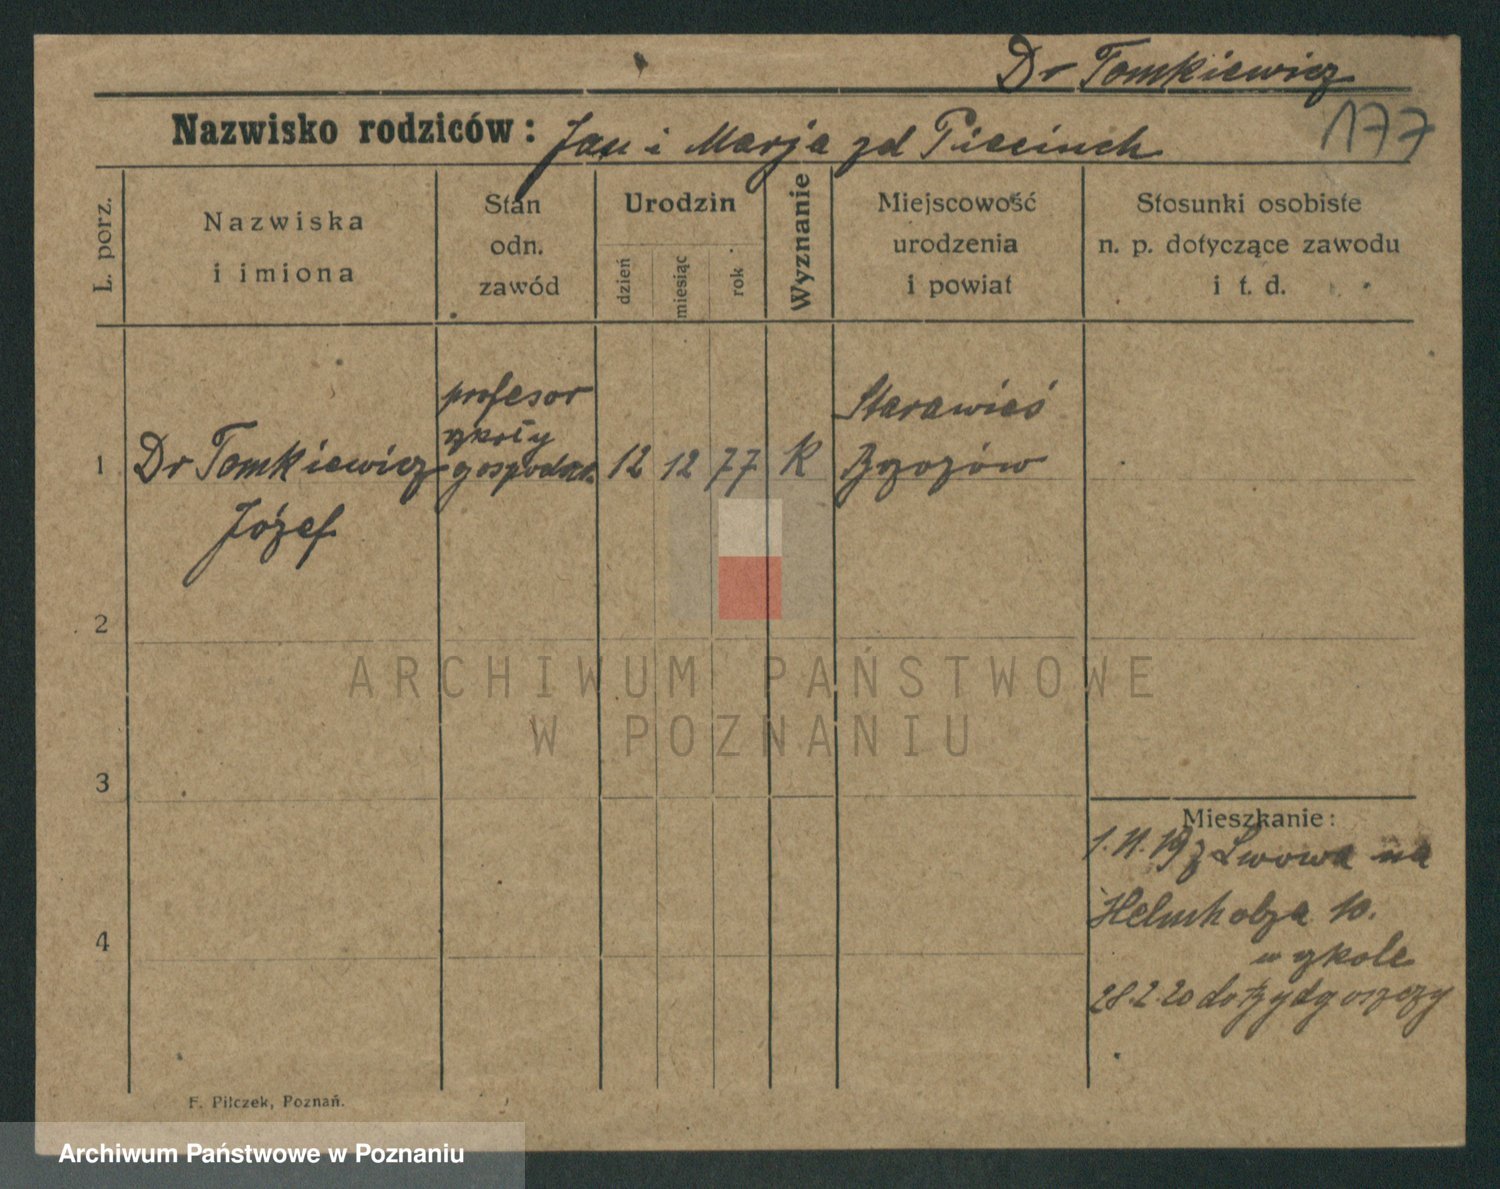 Dr Tomkiewicz
177
Nazwisko rodziców: Jan i Marja zd Pieciuch
L. porz.
Nazwiska
i imiona
Stan
odn.
zawód
Urodzin
dzień
miesiąc
rok
Wyznanie
Miejscowość
urodzenia
i powiat
Stosunki osobiste
n. p. dotyczące zawodu
i t. d.
1
Dr Tomkiewicz
Józef
profesor
szkoły
gospodar.
12
12
77
K
Starawieś
Bzozów
2
3
4
Mieszkanie:
1.11.19 z Lwowa na
Helmholza 10.
w szkole
28.2.20 do Bydgoszczy
F. Pilczek, Poznań.
ARCHIWUM PAŃSTWOWE
W POZNANIU
Archiwum Państwowe w Poznaniu